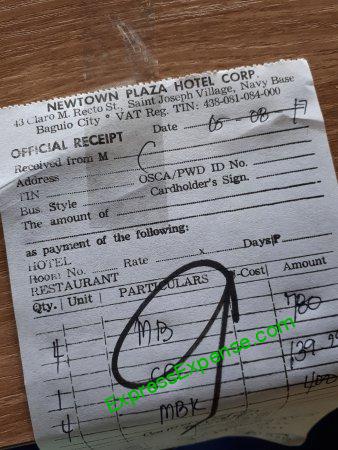 NEWTOWN PLAZA HOTEL CORP.
43 Claro M. Recto St., Saint Joseph Village, Navy Base
Baguio City • VAT Reg. TIN: 438-081-084-000
OFFICIAL RECEIPT
Date 05-08-17
Received from M C
Address
OSCA/PWD ID No.
TIN
Cardholder's Sign.
Bus. Style
The amount of
as payment of the following:
HOTEL
Room No. Rate x Days P
RESTAURANT
Qty. Unit PARTICULARS -Cost Amount
4 MB 780
1 139
4 MBK 400
ExpressExpense.com